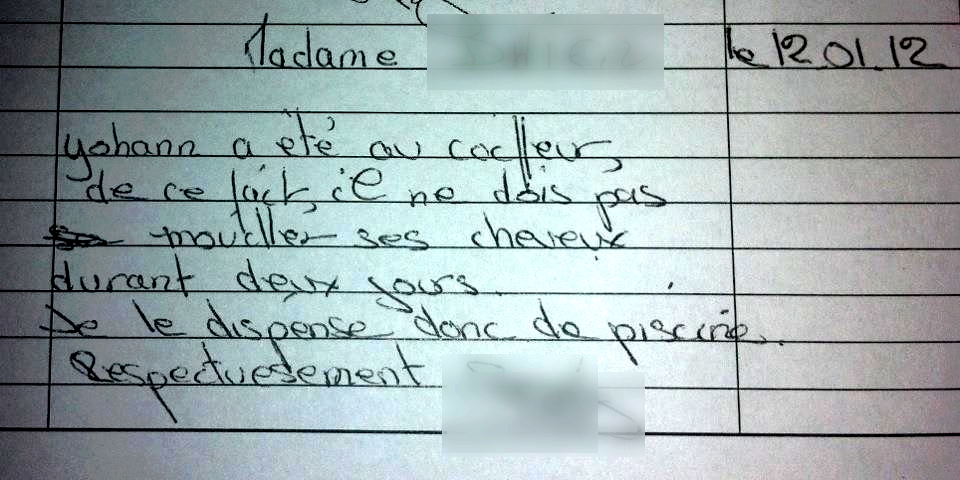 Madame le 12.01.12
Yohann a été au coiffeur,
de ce fait, il ne dois pas
mouiller ses cheveux
durant deux jours.
Je le dispense donc de piscine.
Respectuesement